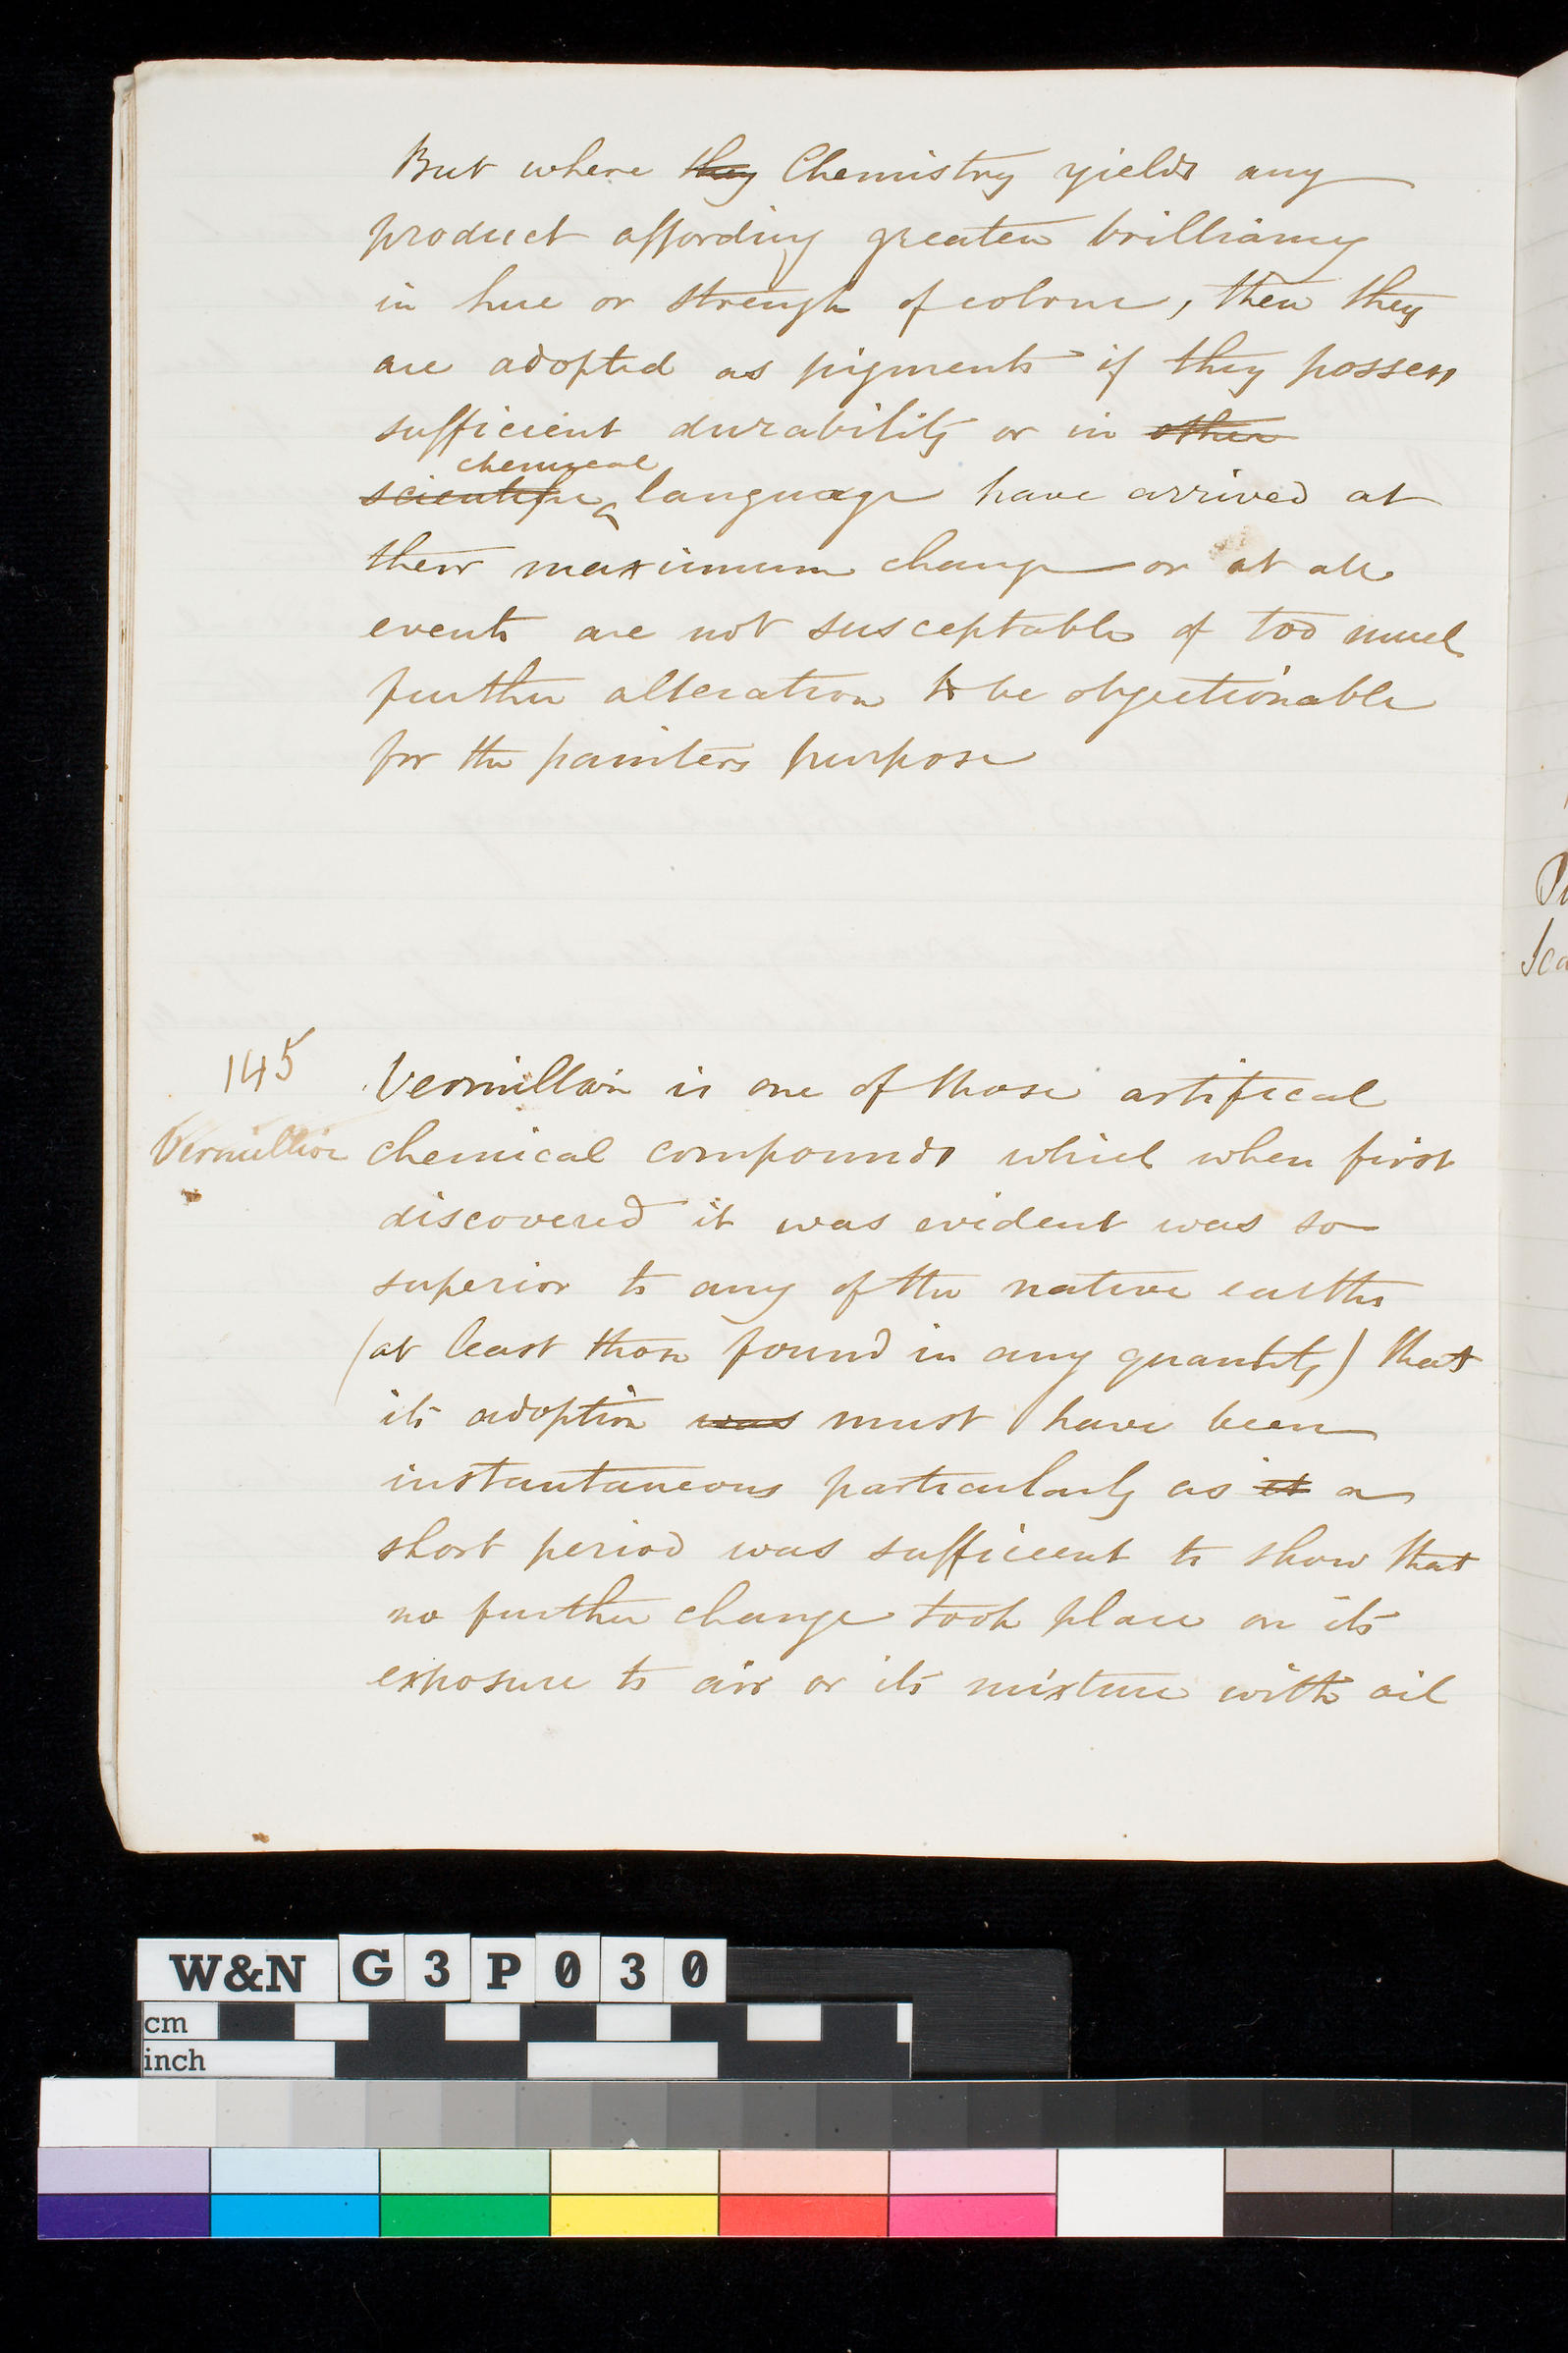 But where ~~they~~ Chemistry yields any
product affording greater brilliancy
in hue or strengh of colour, then they
are adopted as pigments if they possess
sufficient durability or in ~~other~~
chemical
~~scientific~~ ‸ language have arrived at
their maximum change or at all
events are not susceptable of too much
further alteration to be objectionable
for the painters purpose
145
Vermillion is one of those artifical
Vermillion
chemical compounds which when first
discovered it was evident was so
superior to any of the native earths
(at least those found in any quantity) that
its adoption ~~was~~ must have been
instantaneous particularly as ~~it~~ a
short period was sufficient to show that
no further change took place on its
exposure to air or its mixture with oil
W&N G3P030
cm
inch